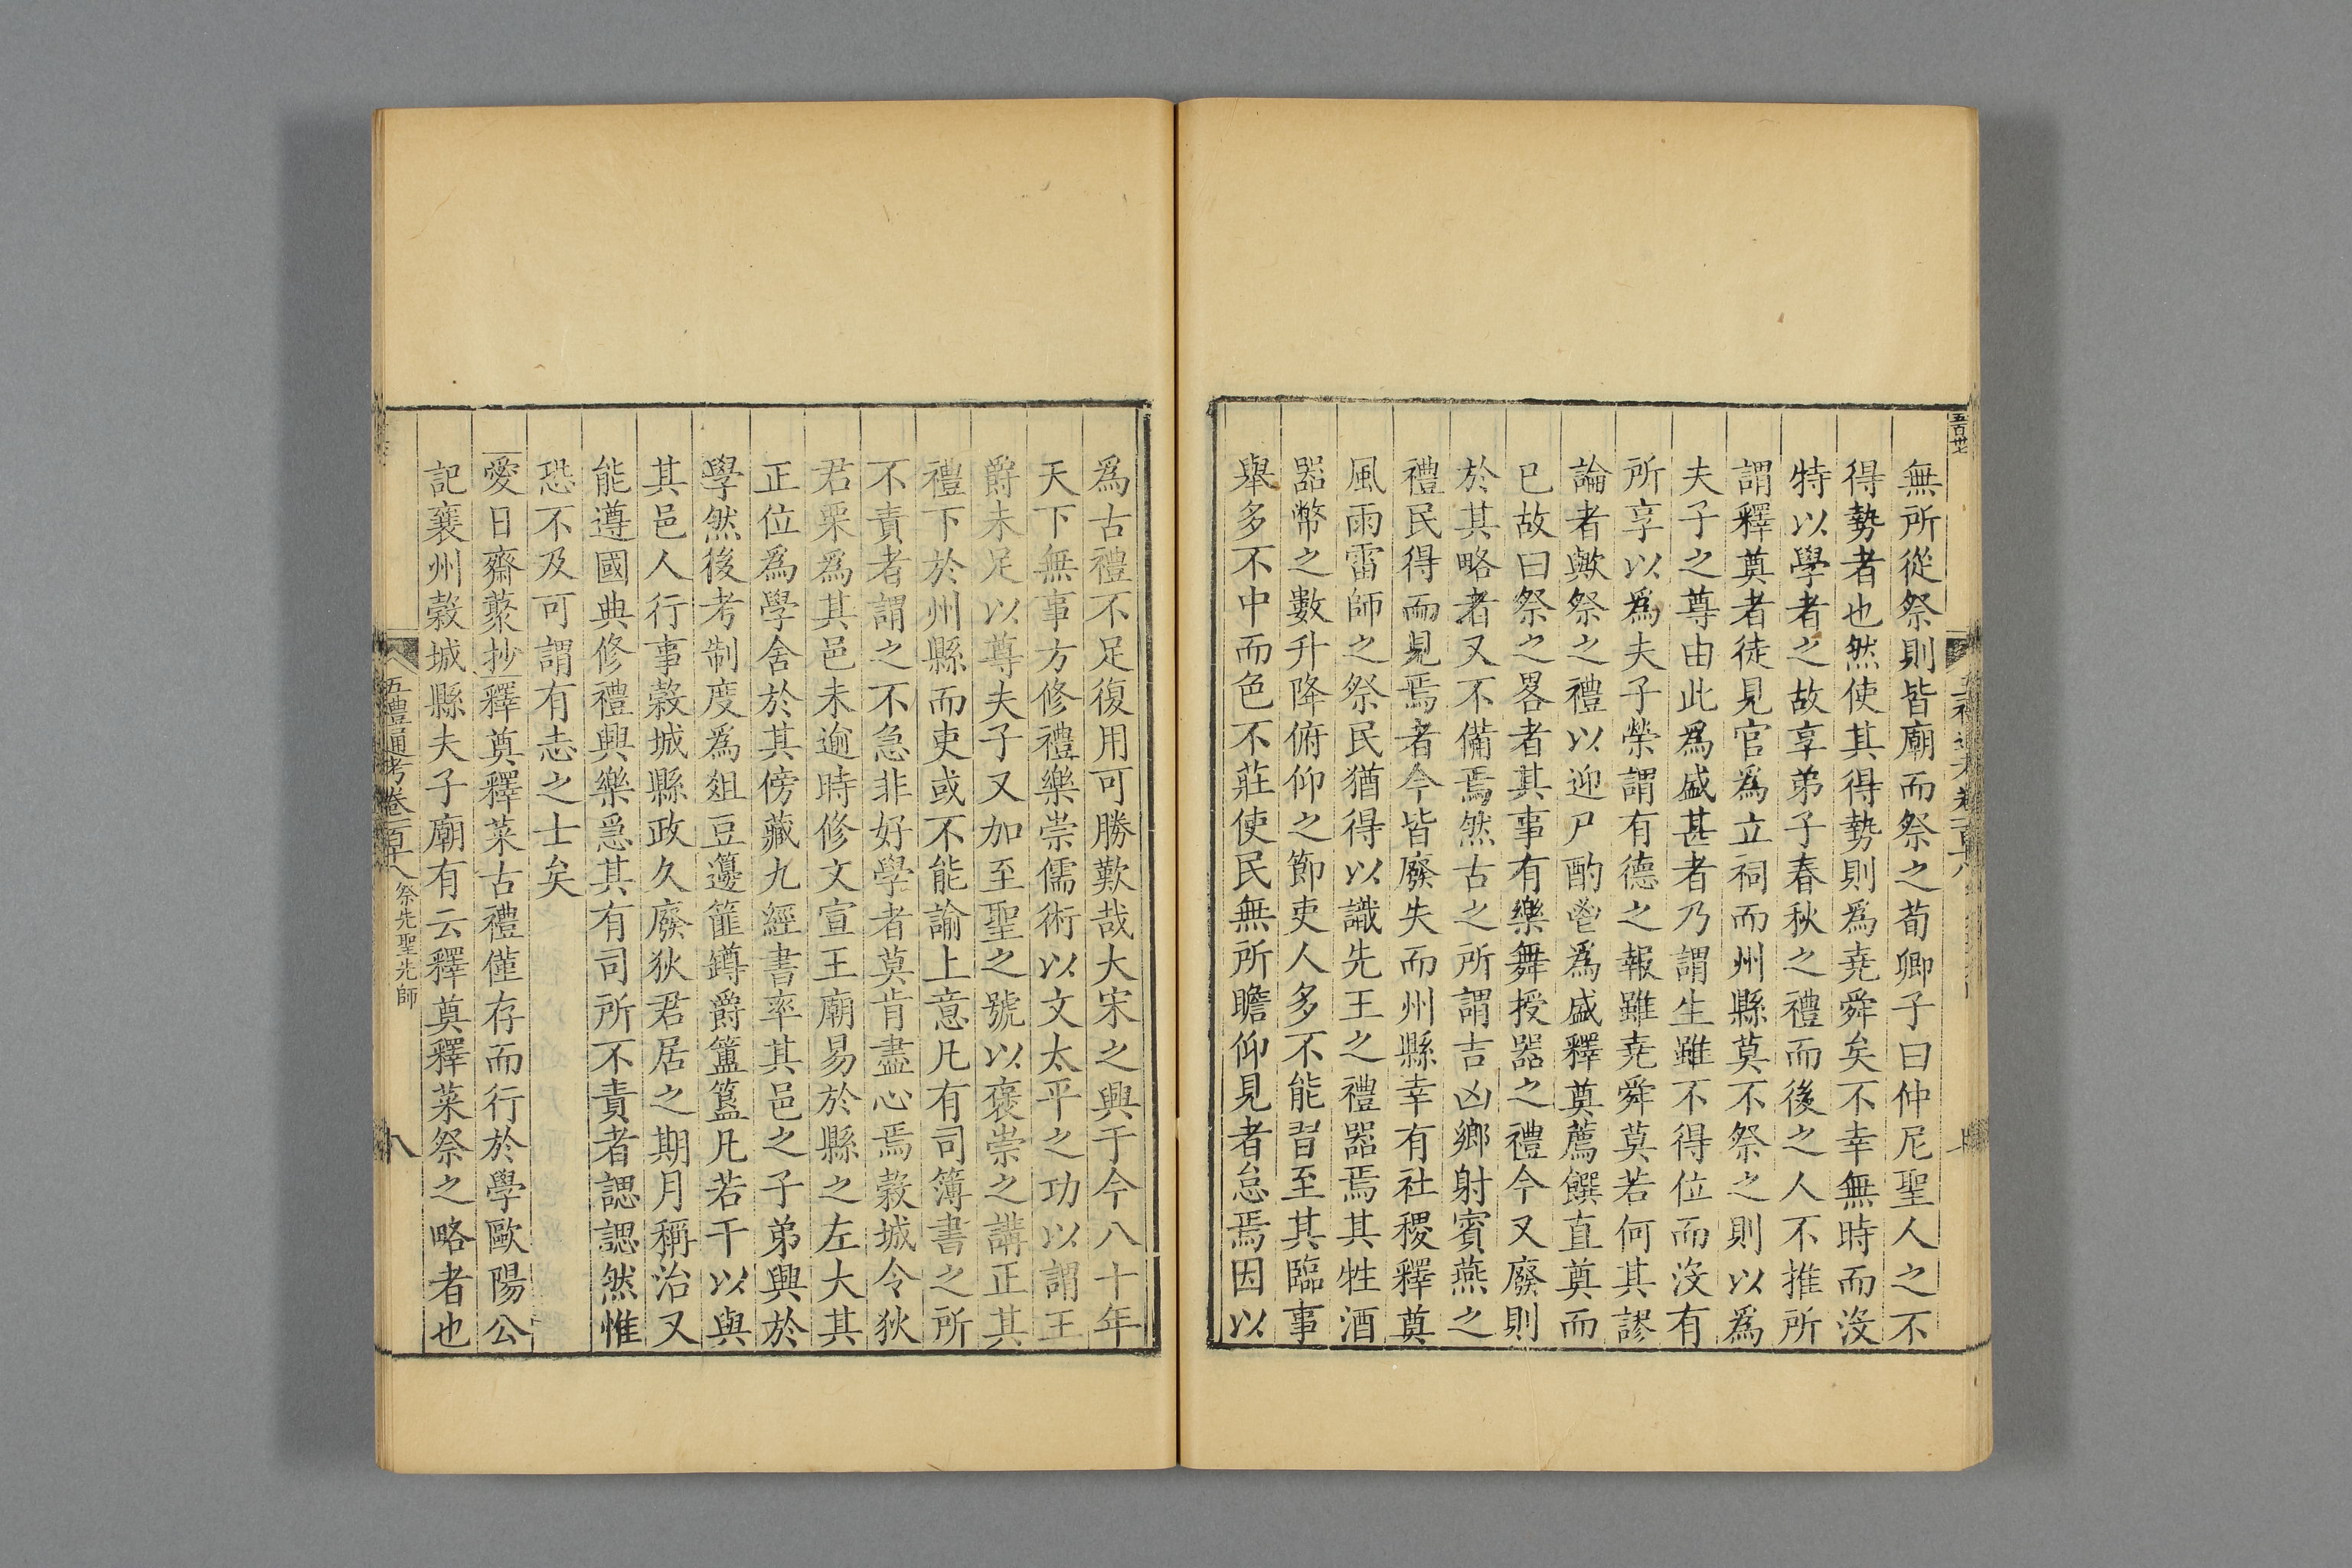 五百卅七
無所從祭則皆廟而祭之荀卿子曰仲尼聖人之不
得勢者也然使其得勢則爲堯舜矣不幸無時而沒
特以學者之故享弟子春秋之禮而後之人不推所
謂釋奠者徒見官爲立祠而州縣莫不祭之則以爲
夫子之尊由此爲盛甚者乃謂生雖不得位而沒有
所享以爲夫子榮謂有德之報雖堯舜莫若何其謬
論者歟祭之禮以迎尸酌鬯爲盛釋奠薦饌直奠而
已故曰祭之畧者其事有樂舞授器之禮今又廢則
於其略者又不備焉然古之所謂吉凶鄉射賓燕之
禮民得而見焉者今皆廢失而州縣幸有社稷釋奠
風雨雷師之祭民猶得以識先王之禮器焉其牲酒
器幣之數升降俯仰之節吏人多不能習至其臨事
舉多不中而色不莊使民無所瞻仰見者怠焉因以
爲古禮不足復用可勝歎哉大宋之興于今八十年
天下無事方修禮樂崇儒術以文太平之功以謂王
爵未足以尊夫子又加至聖之號以褒崇之講正其
禮下於州縣而吏或不能諭上意凡有司簿書之所
不責者謂之不急非好學者莫肯盡心焉穀城令狄
君栗爲其邑未逾時修文宣王廟易於縣之左大其
正位爲學舍於其傍藏九經書率其邑之子弟興於
學然後考制度爲俎豆籩篚罇爵簠簋凡若干以與
其邑人行事穀城縣政久廢狄君居之期月稱治又
能遵國典修禮興樂急其有司所不責者諰諰然惟
恐不及可謂有志之士矣
愛日齋藂抄釋奠釋菜古禮僅存而行於學歐陽公
記襄州穀城縣夫子廟有云釋奠釋菜祭之略者也
五禮通考卷一百十八 祭先聖先師 八